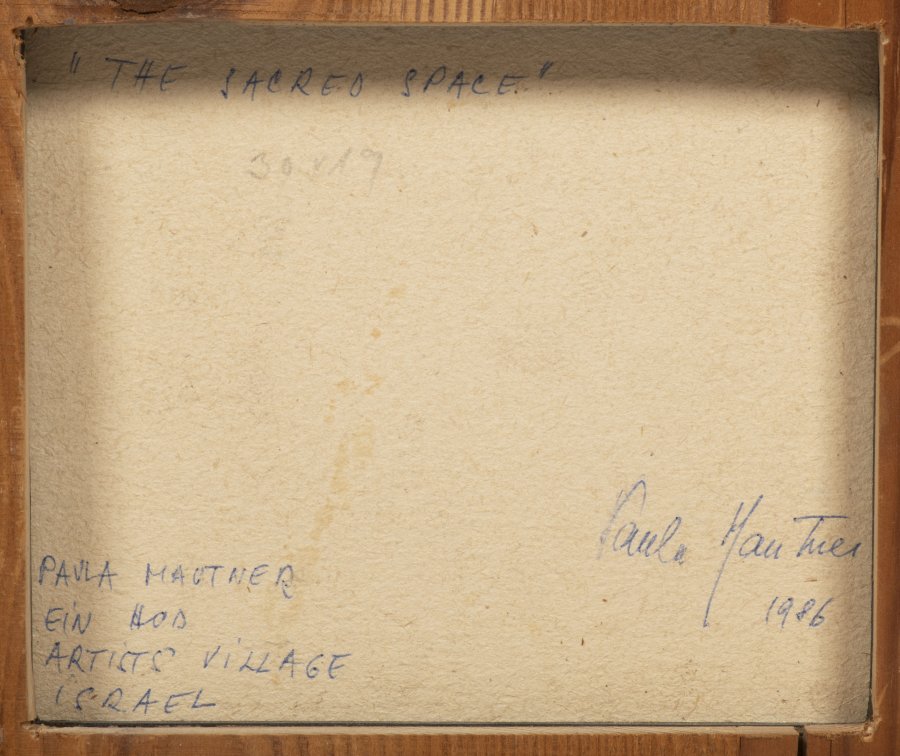 " THE SACRED SPACE "
30 x 19
PAULA MAUTNER
EIN HOD
ARTISTS VILLAGE
ISRAEL
Paula Mautner
1986